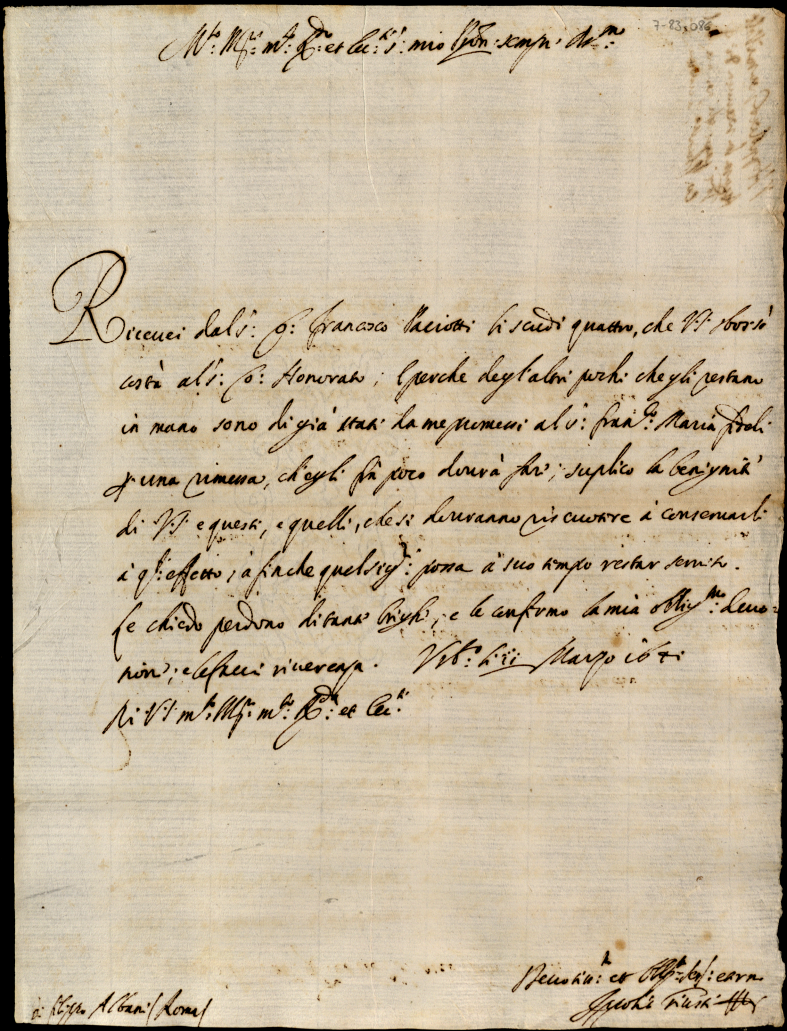 7-83,086
Mto: Mgco: mto: Rdo: et Ecc:te Sr: mio Pron: semp: Oss:mo
Riceuei dal sr: Co: Francesco Paciotti li scudi quattro, che VS sborsò
costà al sr: Co: Honorato; e perche degl'altri pochi ch'egli restano
in mano sono di già stati da me promessi al sr: Fran:co Maria Fedeli
p una rimessa, ch'egli frà poco dourà fare; suplico la benignità
di VS e questi, e quelli, che si douranno riscuotere à conseruarli
à qsto: effetto, à finche quel sigr: possa à suo tempo restar seruito.
Le chiedo perdono di tante brighe, e le confirmo la mia oblig:ma deuo=
tione; e le faccio riuerenza. Urb:o li ii Marzo 1641
Di VS mto: Mgco: mto: Rda: et Ecc:te
Deuotiss: et
sr: Filippo Albani (Roma)